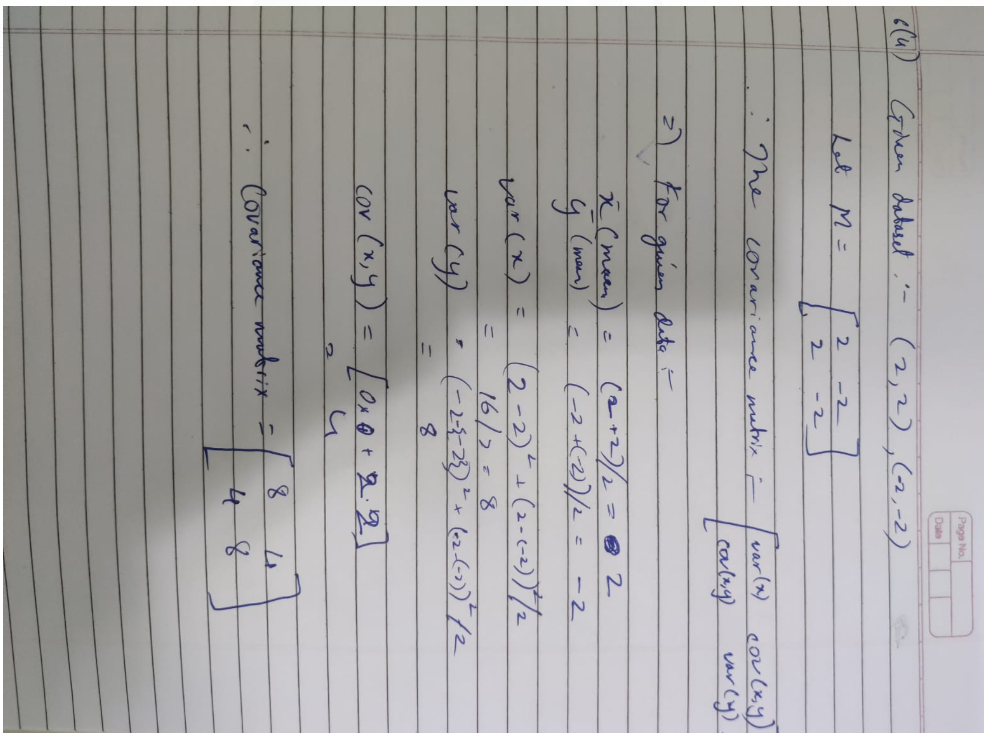 Page No.
Date
6(4) Given dataset :- (2,2), (-2,-2)
Let M = [ 2 -2
2 -2 ]
∴ The covariance matrix :- [ var(x) cov(x,y)
cov(x,y) var(y)
=) For given data :-
x̄ (mean) = (2+2)/2 = 2
ȳ (mean) = (-2+(-2))/2 = -2
var(x) = (2-2)² + (2-(-2))²/2
= 16/2 = 8
var(y) = (-2-{-2})² + (-2-(-2))²/2
= 8
cov(x,y) = [0x0 + 2.2]
= 4
∴ Covariance matrix = [ 8 4
4 8 ]